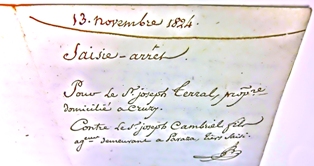 13. novembre 1824.
Saisie-arrêt
Pour le Sr. joseph Terral, propre.
domicilié à Cruzy.
Contre le Sr. joseph Cambriel fils
demeurant à Paraza tiers saisi.